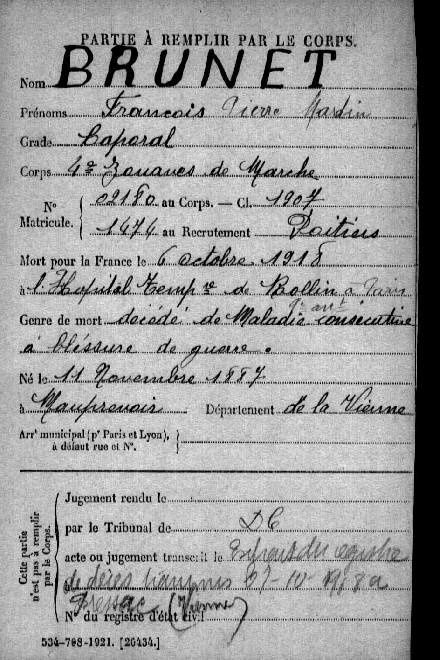 PARTIE À REMPLIR PAR LE CORPS.
Nom BRUNET
Prénoms François Pierre Martin
Grade Caporal
Corps 4e Zouaves de Marche
N° Matricule. 02180 au Corps. — Cl. 1907
1474 au Recrutement Poitiers
Mort pour la France le 6 octobre 1918
à l'Hopital Temp re de Rollin à Paris
9e arrt
Genre de mort décédé de Maladie consécutive
à blessure de guerre.
Né le 11 Novembre 1887
à Mauprevoir Département de la Vienne
Arrt municipal (pr Paris et Lyon),
à défaut rue et N°.
Cette partie n'est pas à remplir par le Corps.
Jugement rendu le
par le Tribunal de DC
acte ou jugement transcrit le Extrait du registre
de décès transmis 27-10-1918 a
Pressac (Vienne)
N° du registre d'état civil
534-708-1921. [26434.]